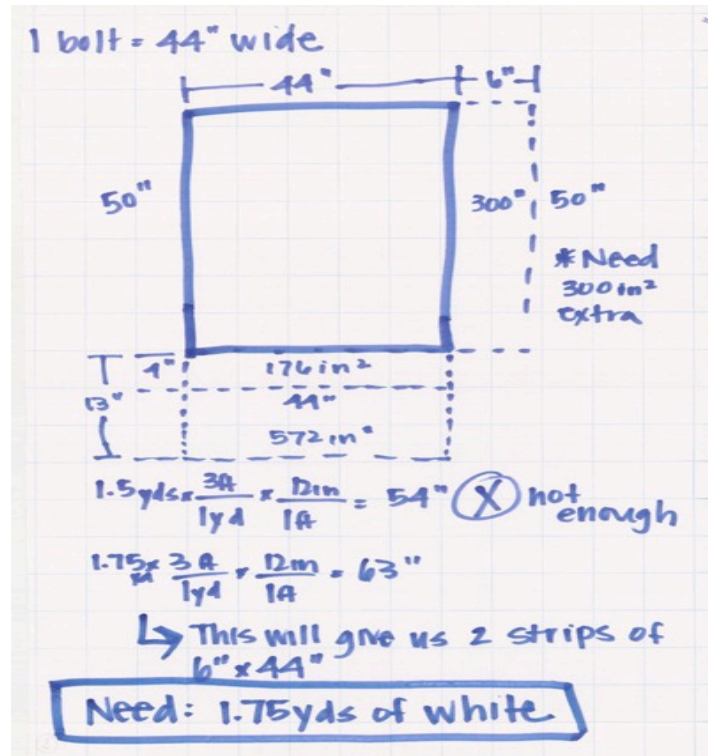 1 bolt = 44" wide
44" 6"
50" 300" 50"
*Need
300 in²
extra
4" 176 in²
13" 44"
572 in"
1.5yds x 3ft/1yd x 12in/1ft = 54" X not enough
1.75 x 3ft/1yd x 12in/1ft = 63"
↳ This will give us 2 strips of
6" x 44"
Need: 1.75yds of white